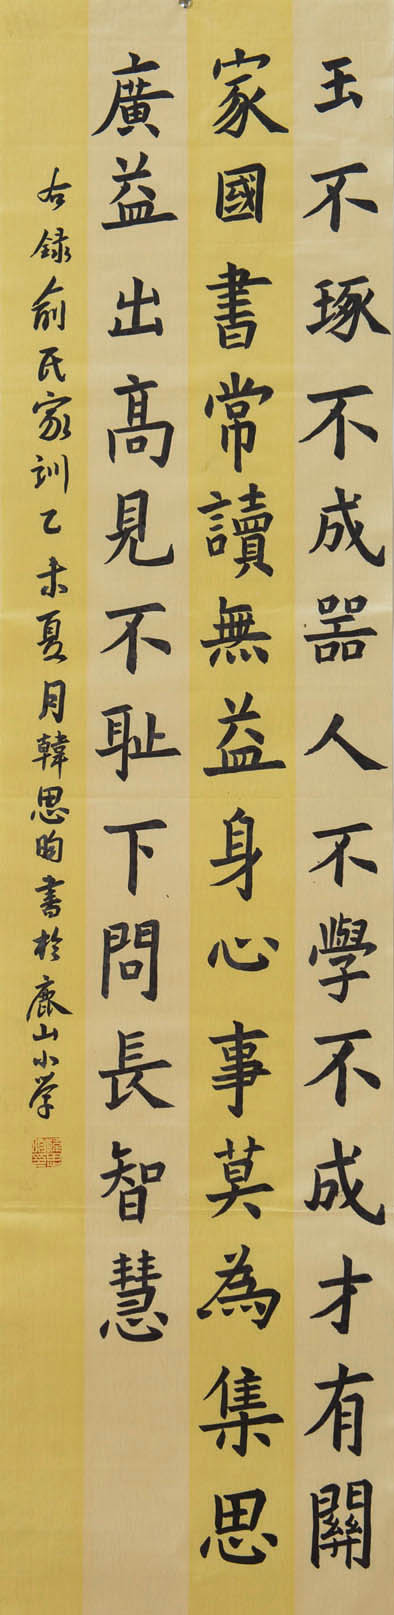 玉不琢不成器人不學不成才有關
家國書常讀無益身心事莫為集思
廣益出高見不耻下問長智慧
右錄俞氏家訓乙未夏月韓思昀書於鹿山小学